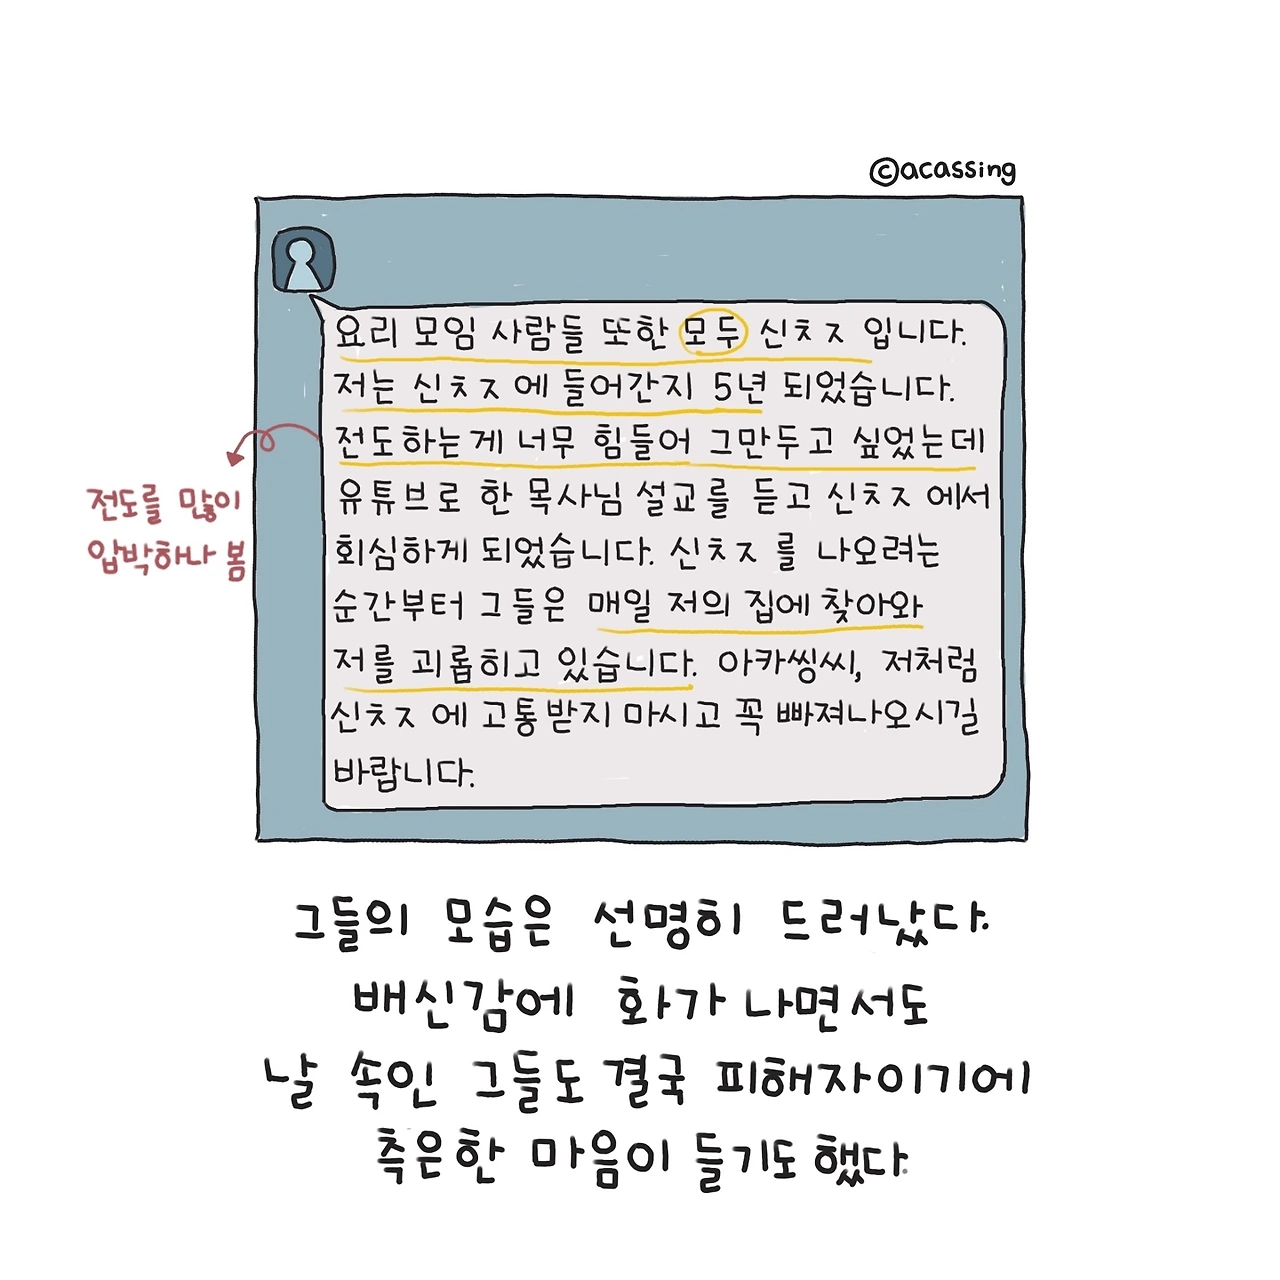 ©acassing
요리 모임 사람들 또한 모두 신ㅊㅈ 입니다.
저는 신ㅊㅈ 에 들어간지 5년 되었습니다.
전도하는게 너무 힘들어 그만두고 싶었는데
유튜브로 한 목사님 설교를 듣고 신ㅊㅈ 에서
회심하게 되었습니다. 신ㅊㅈ 를 나오려는
순간부터 그들은 매일 저의 집에 찾아와
저를 괴롭히고 있습니다. 아카씽씨, 저처럼
신ㅊㅈ 에 고통받지 마시고 꼭 빠져나오시길
바랍니다.
전도를 많이
압박하나 봄
그들의 모습은 선명히 드러났다.
배신감에 화가 나면서도
날 속인 그들도 결국 피해자이기에
측은한 마음이 들기도 했다.